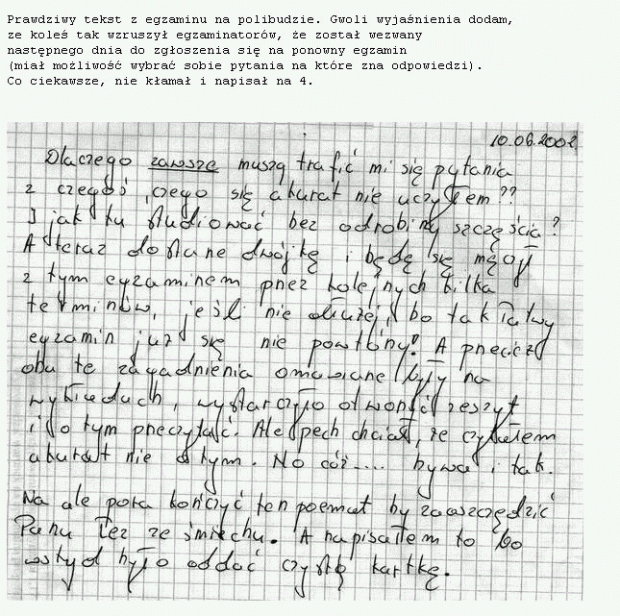 Prawdziwy tekst z egzaminu na polibudzie. Gwoli wyjaśnienia dodam,
ze koleś tak wzruszył egzaminatorów, że został wezwany
następnego dnia do zgłoszenia się na ponowny egzamin
(miał możliwość wybrać sobie pytania na które zna odpowiedzi).
Co ciekawsze, nie kłamał i napisał na 4.
10.06.2002
Dlaczego zawsze muszą trafić mi się pytania
z czegoś czego się akurat nie uczyłem??
I jak tu studiować bez odrobiny szczęścia?
A teraz dostanę dwójkę i będę się męczył
z tym egzaminem przez kolejnych kilka
terminów, jeśli nie dłużej, bo tak łatwy
egzamin już się nie powtórzy! A przecież
oba te zagadnienia omawiane były na
wykładach, wystarczyło otworzyć zeszyt
i o tym przeczytać. Ale pech chciał, że czytałem
akurat nie o tym. No cóż.... bywa i tak.
Na ale pora kończyć ten poemat by zaoszczędzić
Panu łez ze śmiechu. A napisałem to bo
wstyd było oddać czystą kartkę.